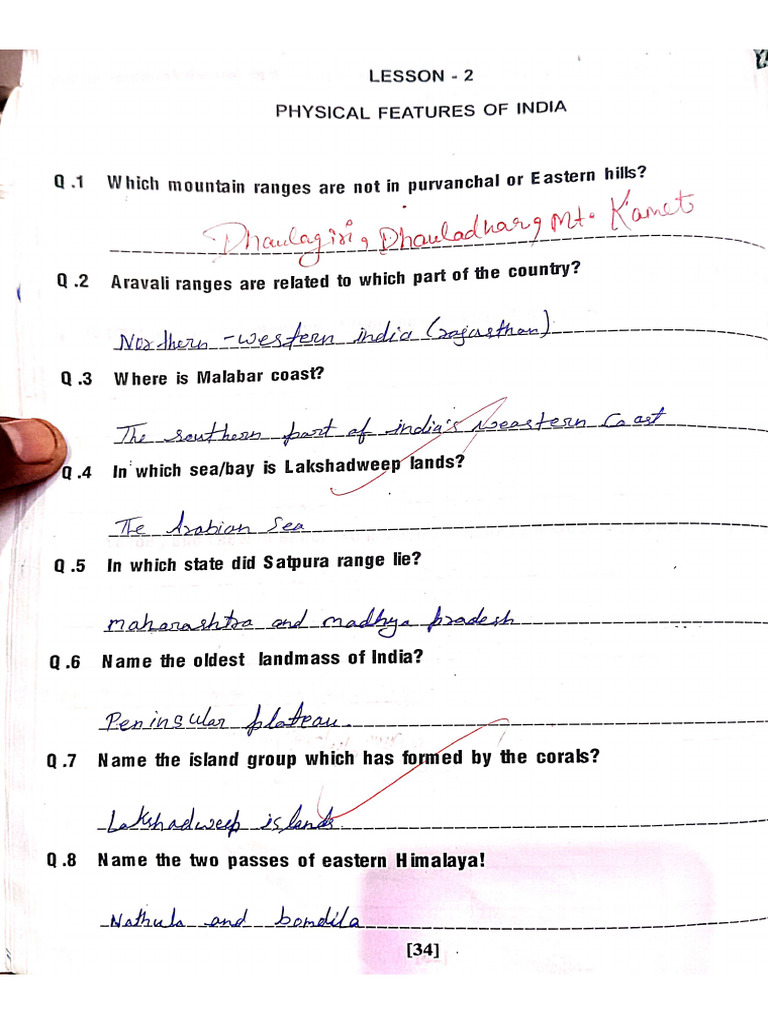 LESSON - 2
PHYSICAL FEATURES OF INDIA
Q.1 Which mountain ranges are not in purvanchal or Eastern hills?
Dhaulagiri, Dhauladhar, Mt. Kamet
Q.2 Aravali ranges are related to which part of the country?
Northern-western india (rajasthan)
Q.3 Where is Malabar coast?
The southern part of india's eastern Coast
Q.4 In which sea/bay is Lakshadweep lands?
The Arabian Sea
Q.5 In which state did Satpura range lie?
maharashtra and madhya pradesh
Q.6 Name the oldest landmass of India?
Peninsular plateau.
Q.7 Name the island group which has formed by the corals?
Lakshadweep islands
Q.8 Name the two passes of eastern Himalaya!
Nathula and bomdila
[34]